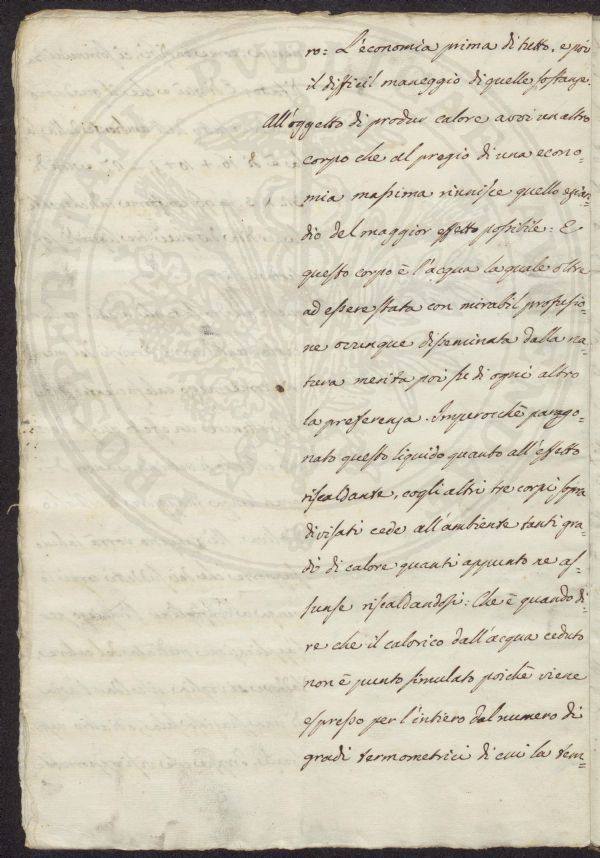 ro= L'economia prima di tutto, e poi
il difficil maneggio di quelle sostanze.
All'oggetto di produr calore avvi un altro
corpo che al pregio di una econo=
mia massima riunisce quello ezian=
dio del maggior effetto possibile: E
questo corpo è l'acqua la quale oltre
ad essere stata con mirabil profusio=
ne ovunque diseminata dalla na=
tura merita poi su di ogni altro
la preferenza. Imperoichè parago=
nato questo liquido quanto all'effetto
riscaldante, cogli altri tre corpi sopra
divisati cede all'ambiente tanti gra=
di di calore quanti appunto ne as=
sunse riscaldandosi: Che è quando di=
re che il calorico dall'acqua ceduto
non è punto simulato poichè viene
espresso per l'intiero dal numero di
gradi termometrici di cui la tem=